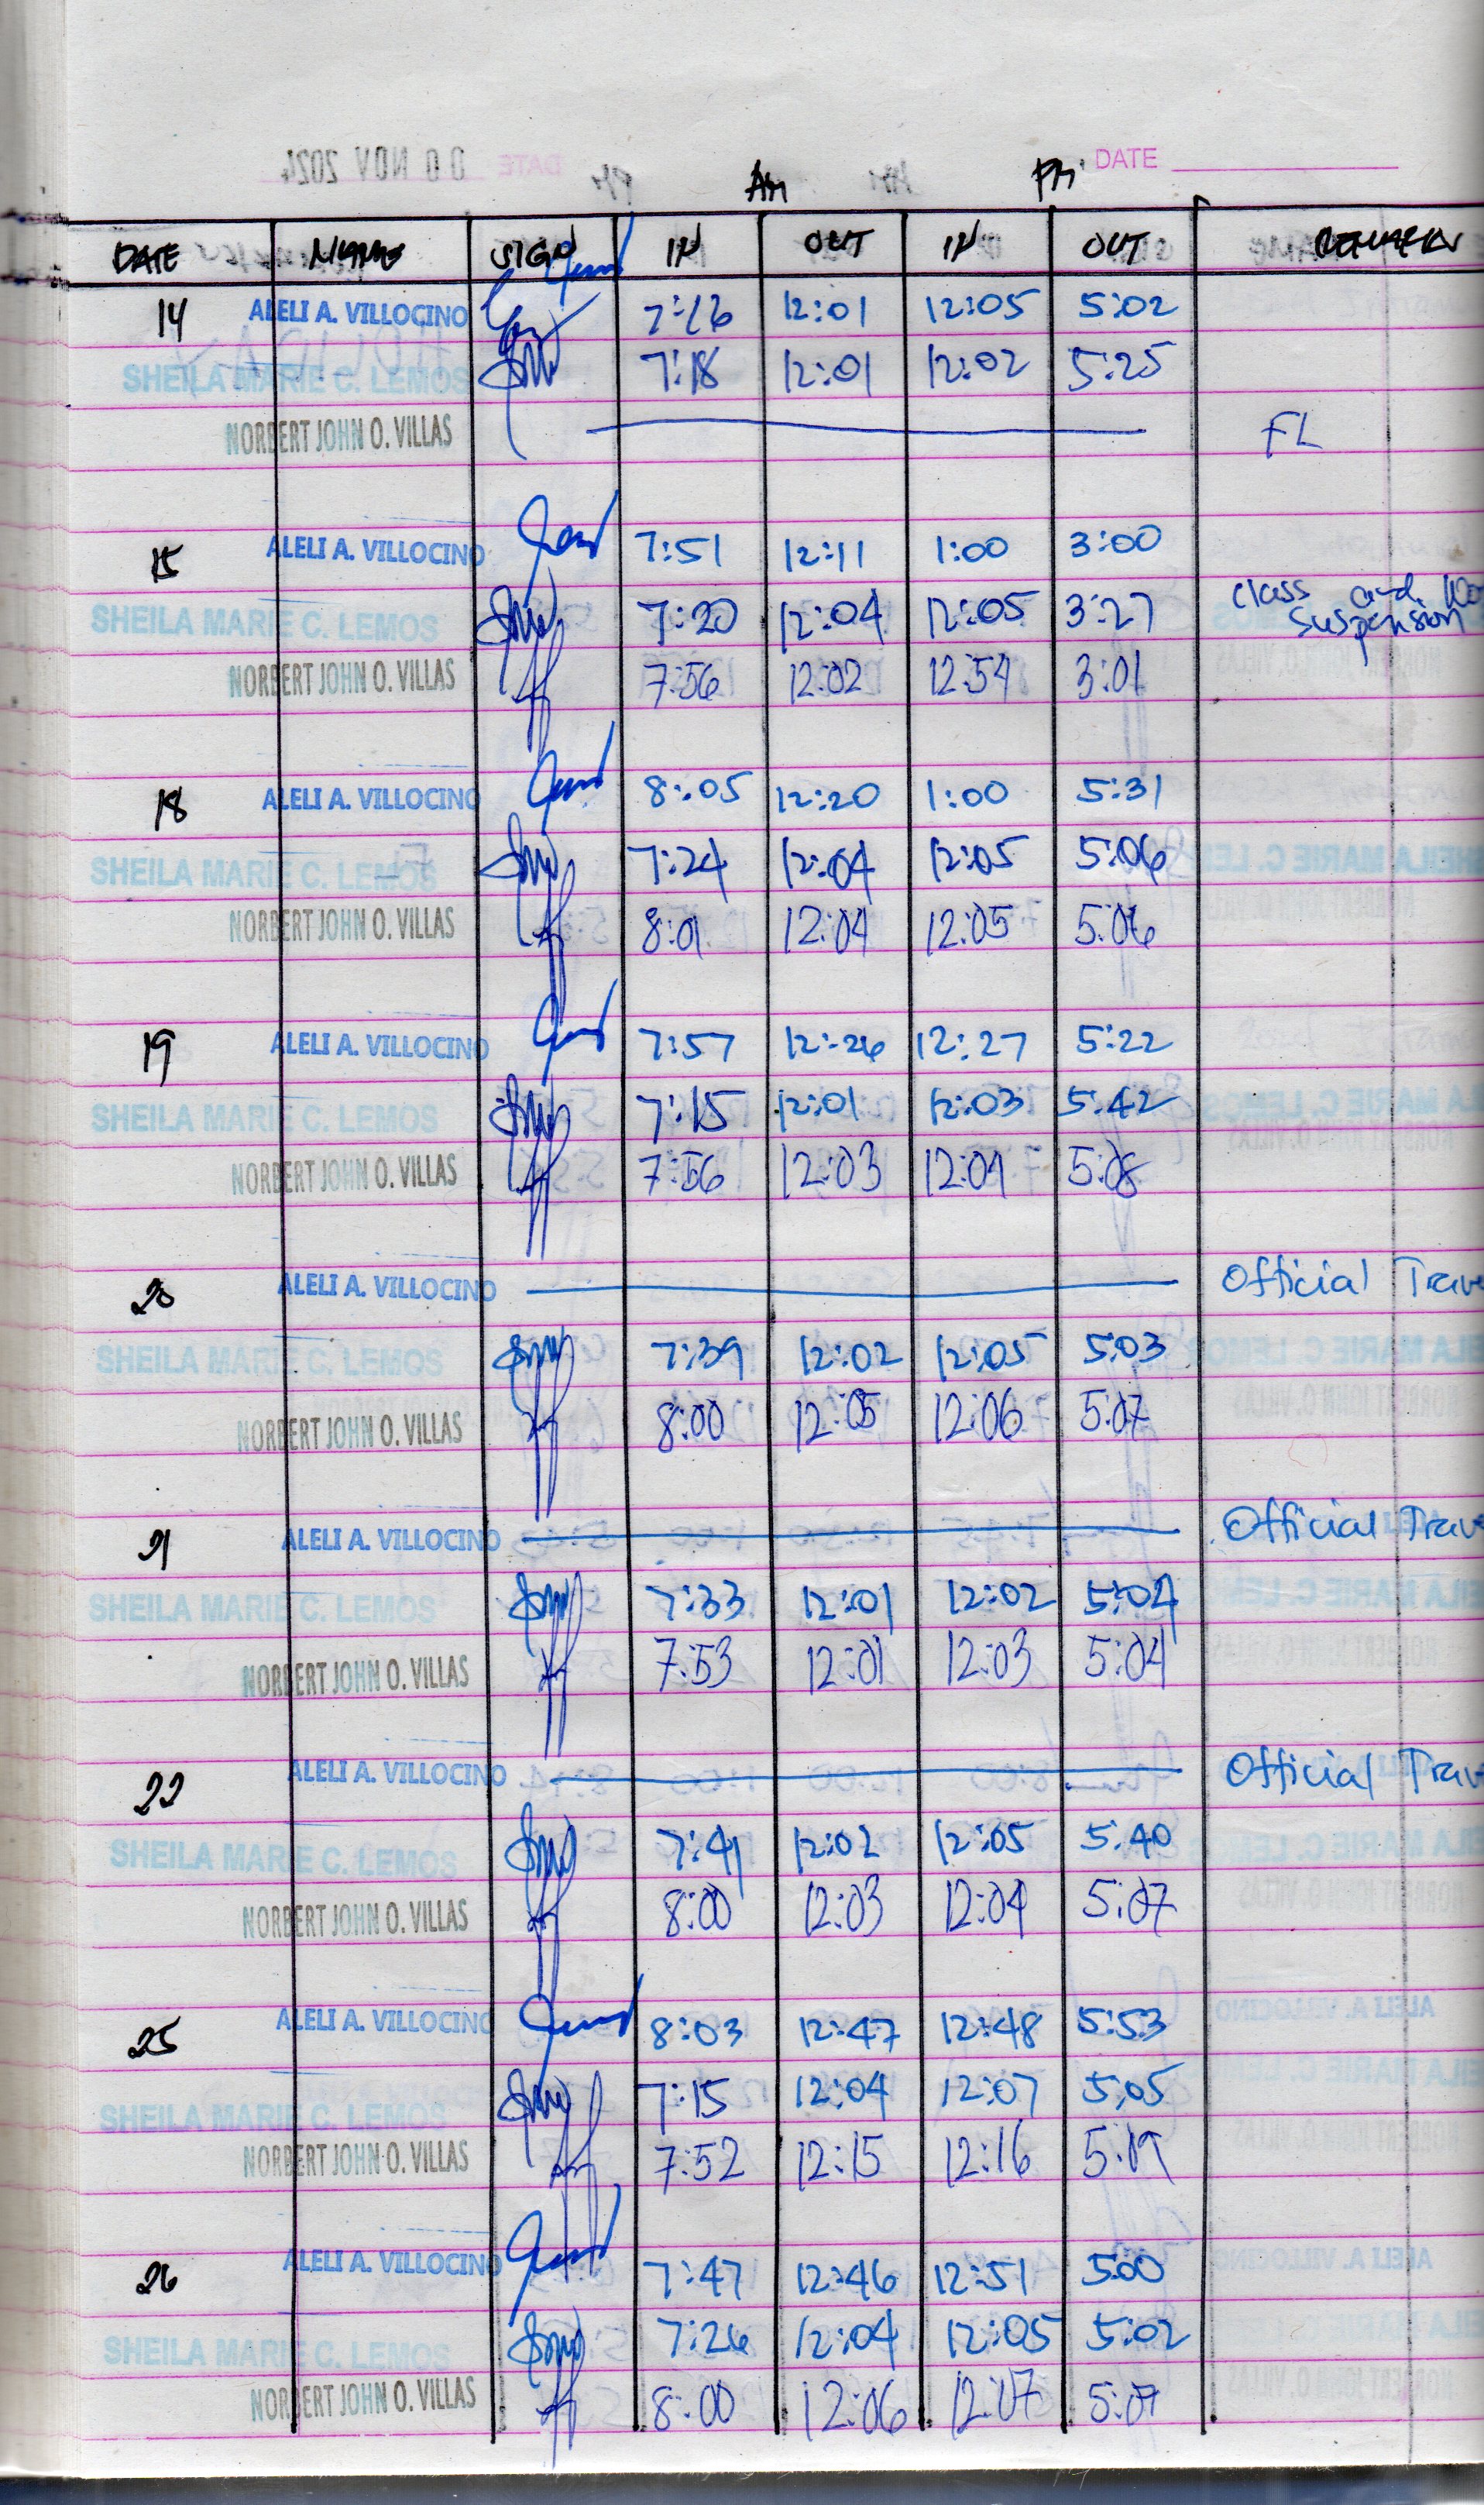 DATE
AM PM
DATE NAME SIGN IN OUT IN OUT REMARKS
14 ALELI A. VILLOCINO 7:16 12:01 12:05 5:02
SHEILA MARIE C. LEMOS 7:18 12:01 12:02 5:25
NORBERT JOHN O. VILLAS FL
15 ALELI A. VILLOCINO 7:51 12:11 1:00 3:00
SHEILA MARIE C. LEMOS 7:20 12:04 12:05 3:27 Class and
Suspension
NORBERT JOHN O. VILLAS 7:56 12:02 12:54 3:01
18 ALELI A. VILLOCINO 8:05 12:20 1:00 5:31
SHEILA MARIE C. LEMOS 7:24 12:04 12:05 5:06
NORBERT JOHN O. VILLAS 8:01 12:04 12:05 5:06
19 ALELI A. VILLOCINO 7:57 12:26 12:27 5:22
SHEILA MARIE C. LEMOS 7:15 12:01 12:03 5:42
NORBERT JOHN O. VILLAS 7:56 12:03 12:04 5:08
20 ALELI A. VILLOCINO Official Trave
SHEILA MARIE C. LEMOS 7:39 12:02 12:05 5:03
NORBERT JOHN O. VILLAS 8:00 12:05 12:06 5:07
21 ALELI A. VILLOCINO Official Trav
SHEILA MARIE C. LEMOS 7:33 12:01 12:02 5:04
NORBERT JOHN O. VILLAS 7:53 12:01 12:03 5:04
22 ALELI A. VILLOCINO Official Trav
SHEILA MARIE C. LEMOS 7:41 12:02 12:05 5:40
NORBERT JOHN O. VILLAS 8:00 12:03 12:04 5:07
25 ALELI A. VILLOCINO 8:03 12:47 12:48 5:53
SHEILA MARIE C. LEMOS 7:15 12:04 12:07 5:05
NORBERT JOHN O. VILLAS 7:52 12:15 12:16 5:19
26 ALELI A. VILLOCINO 7:47 12:46 12:51 5:00
SHEILA MARIE C. LEMOS 7:26 12:04 12:05 5:02
NORBERT JOHN O. VILLAS 8:00 12:06 12:07